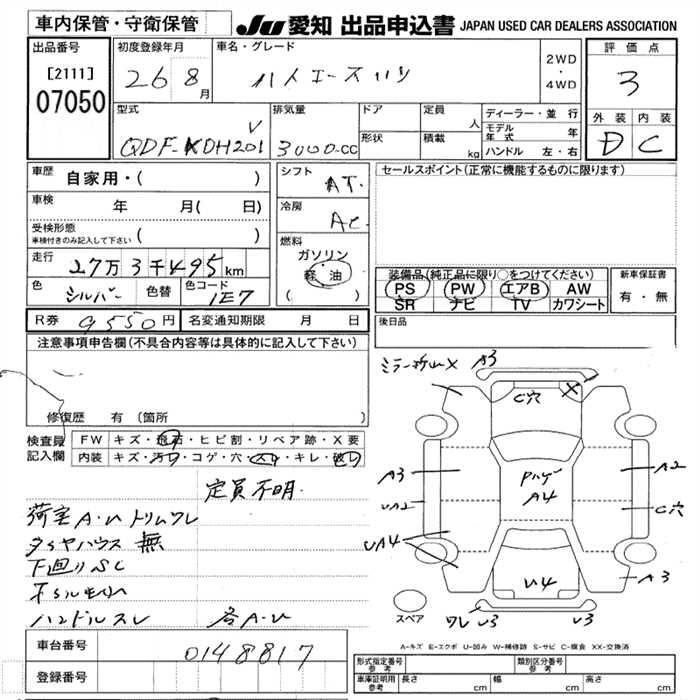 車内保管・守衛保管
JU 愛知 出品申込書 JAPAN USED CAR DEALERS ASSOCIATION
出品番号
[2111]
07050
初度登録年月
26 8月
車名・グレード
ハイエースバン
2WD
・
4WD
評価点
3
外装 内装
D C
型式
QDF-KDH201V
排気量
3000cc
ドア
形状
定員 人
積載 kg
ディーラー・並行
モデル年式 年
ハンドル 左・右
車歴 自家用・( )
車検 年 月( 日)
受検形態 車検付きのみ記入して下さい ( )
走行 27万3千495km
色 シルバー 色替 色コード 1E7
シフト AT
冷房 AC
燃料
ガソリン
軽油
( )
セールスポイント(正常に機能するものに限ります)
装備品(純正品に限り○をつけてください)
PS PW エアB AW
SR ナビ TV カワシート
新車保証書
有・無
R券 9550円 名変通知期限 月 日
後日品
注意事項申告欄(不具合内容等は具体的に記入して下さい)
修復歴 有(箇所
検査員記入欄
FW キズ・飛石・ヒビ割・リペア跡・X要
内装 キズ・汚れ・コゲ・穴・スレ・キレ・破レ
定員不明
荷室A・U トリムワレ
タイヤハウス 無
下回りSC
ハンドルスレ 各A・U
車台番号 0148817
登録番号
X A3
C穴 X
A3
UA2
UA4
A4
A2
C穴
A3
U4
ワレ U3 U3
スペア
A-キズ E-エクボ U-凹み W-補修跡 S-サビ C-腐食 XX-交換済
形式指定番号 参考 類別区分番号 参考
車庫証明用 参考 長さ cm 幅 cm 高さ cm